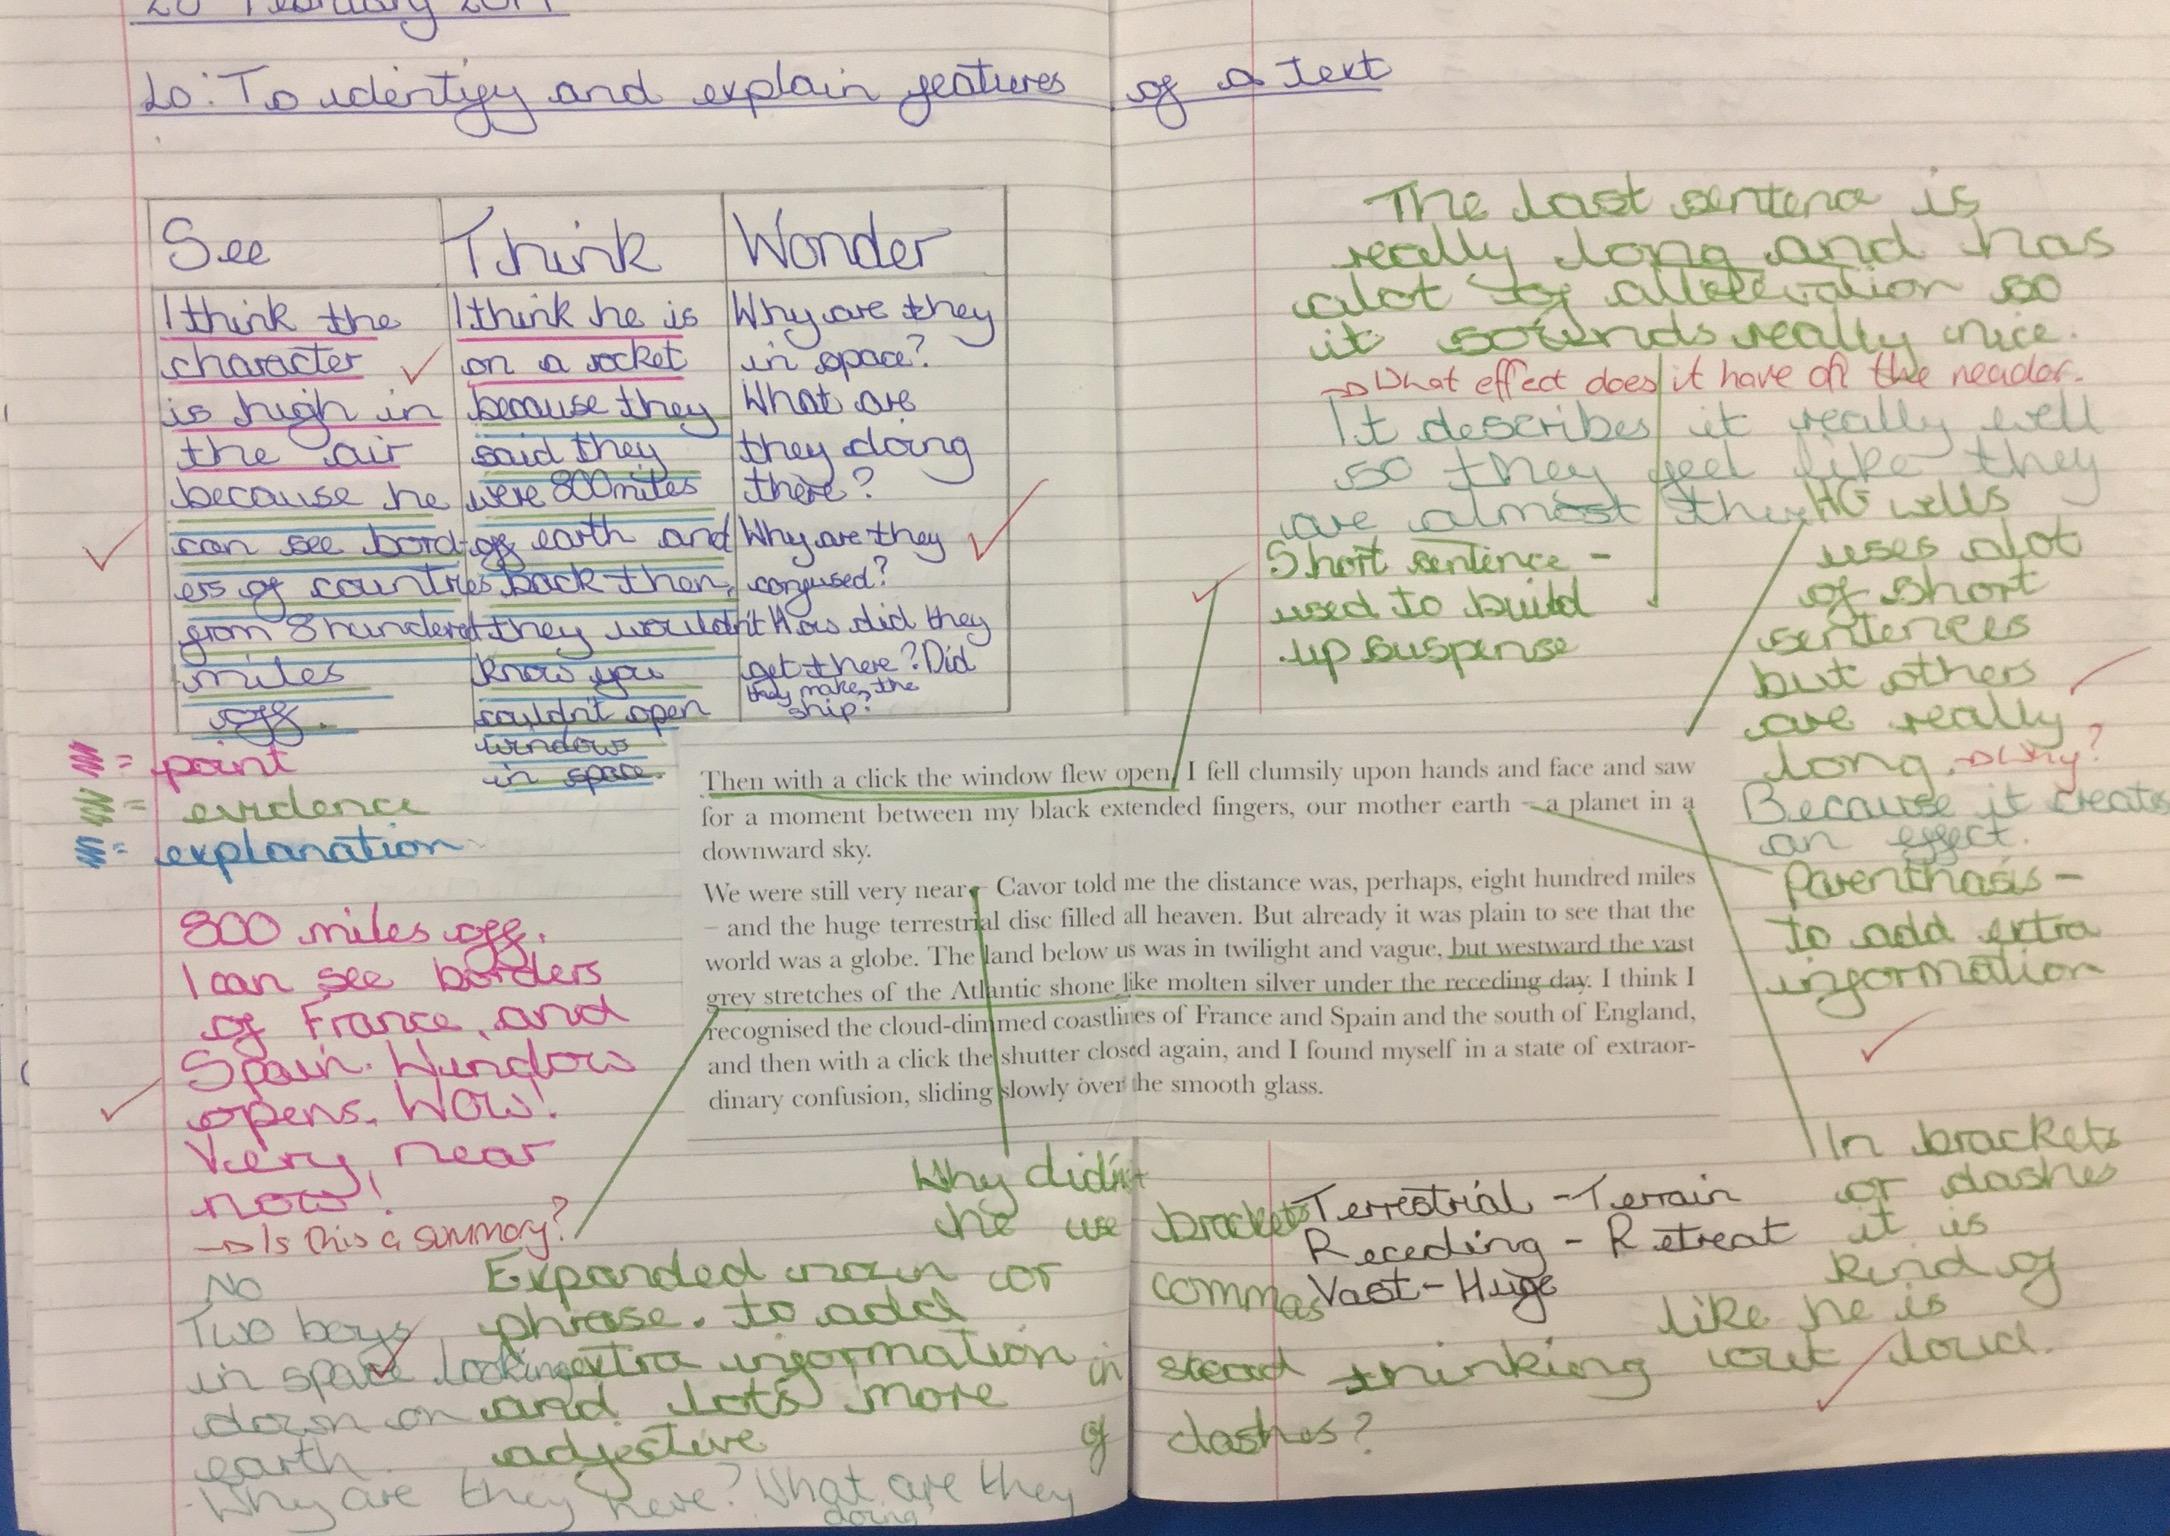 20 February
Lo: To identify and explain features of a text
See
I think the
character
is high in
the air
because he
can see bord-
ers of countries
from 8 hundered
miles
off.
Think
I think he is
on a rocket
because they
said they
were 800 miles
off earth and
back then,
they wouldn't
know you
couldn't open
windows
in space.
Wonder
Why are they
in space?
What are
they doing
there?
Why are they
confused?
How did they
get there? Did
they make the
ship?
= point
= evidence
= explanation
800 miles off.
I can see borders
of France, and
Spain. Window
opens. Wow!
Very near
now!
Is this a summary?
No
Two boys
in space looking
down on
earth.
Why are they here? What are they
doing
The last sentence is
really long and has
alot of
it sounds really nice.
What effect does it have on the reader.
It describes it really well
so they feel like they
are almost
Short sentence -
used to build
up suspense
HG wells
uses alot
of short
sentences
but others
are really
long.
Why?
Because it creates
an effect.
Parenthasis -
to add extra
information
Then with a click the window flew open, I fell clumsily upon hands and face and saw
for a moment between my black extended fingers, our mother earth – a planet in a
downward sky.
We were still very near – Cavor told me the distance was, perhaps, eight hundred miles
– and the huge terrestrial disc filled all heaven. But already it was plain to see that the
world was a globe. The land below us was in twilight and vague, but westward the vast
grey stretches of the Atlantic shone like molten silver under the receding day. I think I
recognised the cloud-dimmed coastlines of France and Spain and the south of England,
and then with a click the shutter closed again, and I found myself in a state of extraor-
dinary confusion, sliding slowly over the smooth glass.
Expanded noun
phrase. to add
extra information
and lots more
adjective
Why didn't
he use brackets
or commas
in stead
of dashes?
Terrestrial - Terrain
Receding - Retreat
Vast - Huge
In brackets
or dashes
it is
kind of
like he is
thinking out loud.